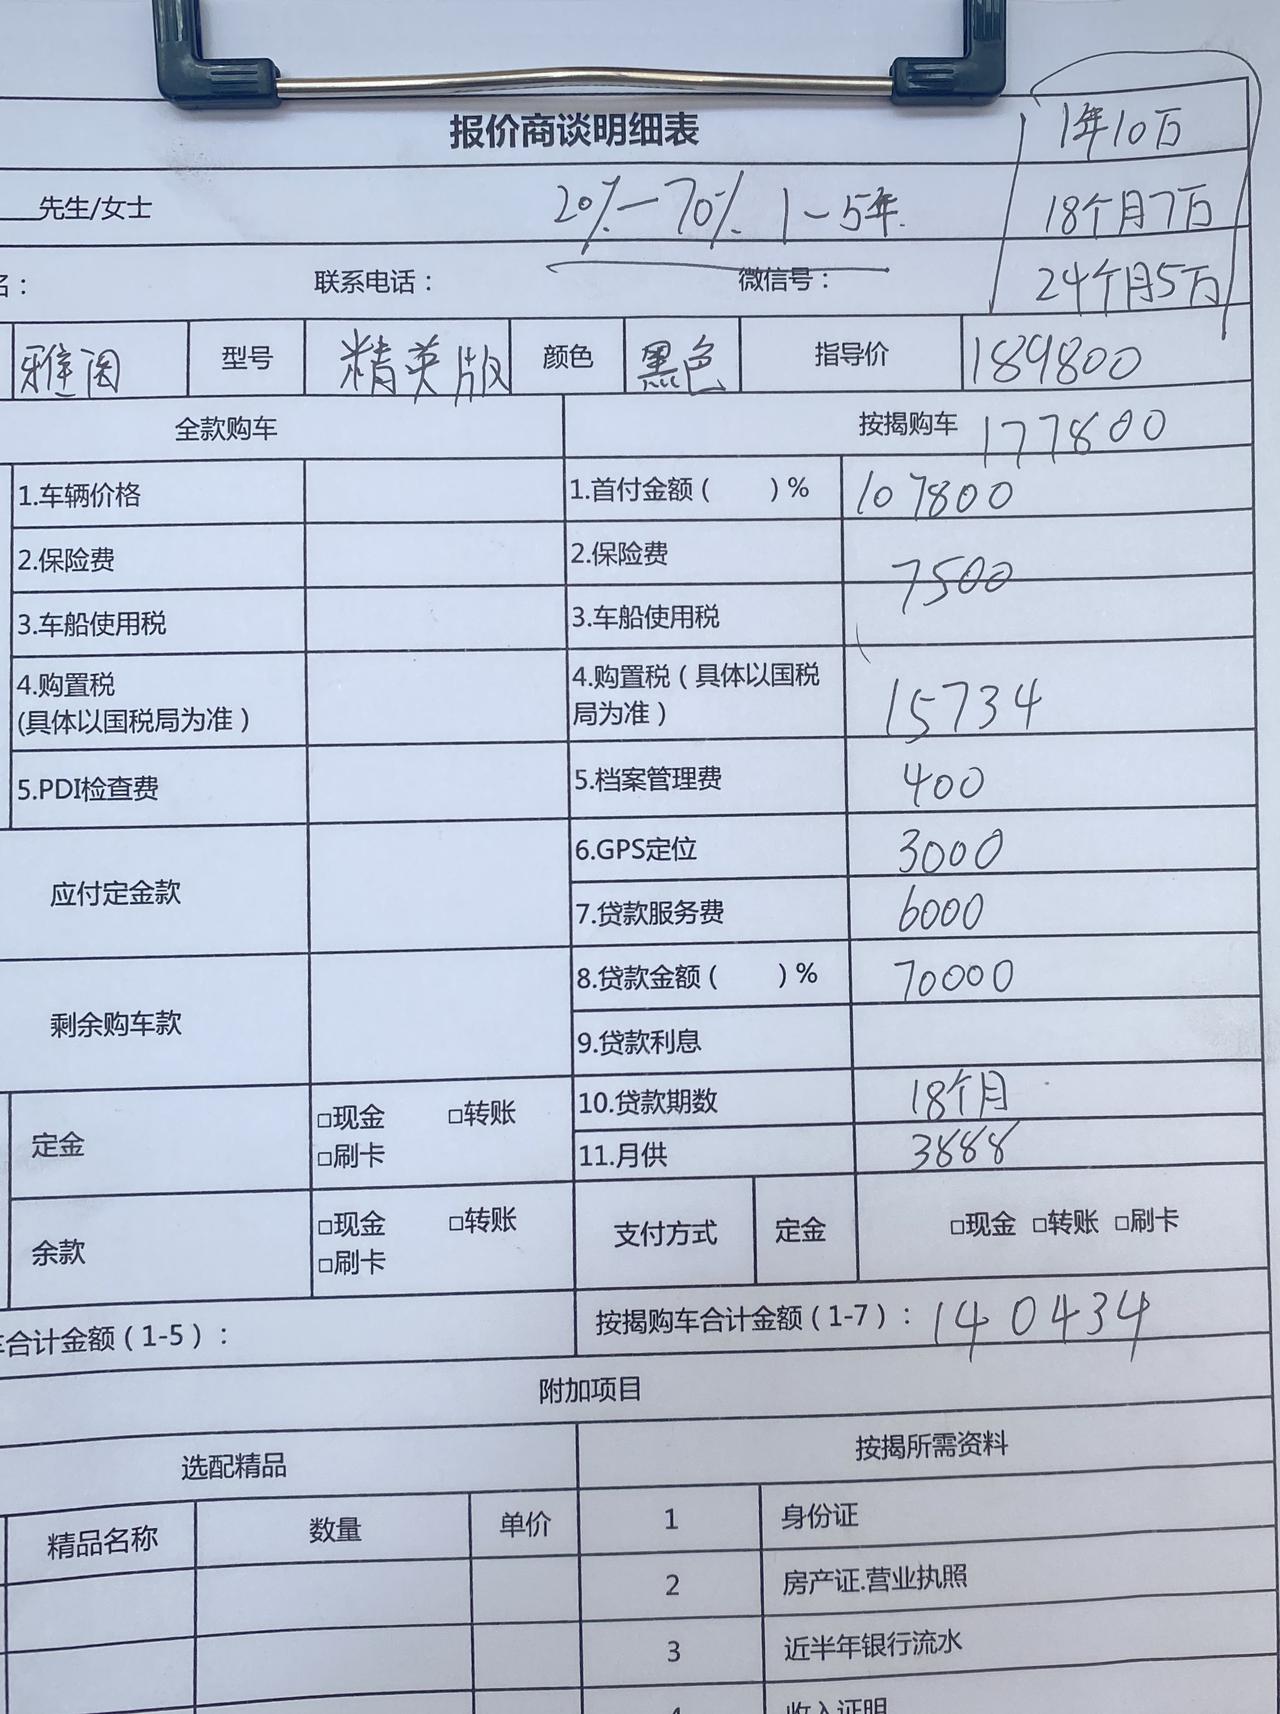 报价商谈明细表
1年10万
先生/女士
20%—70% 1—5年
18个月7万
24个月5万
名：
联系电话：
微信号：
雅阁 型号 精英版 颜色 黑色 指导价 189800
全款购车 按揭购车 177800
1.车辆价格 1.首付金额（ ）% 107800
2.保险费 2.保险费 7500
3.车船使用税 3.车船使用税
4.购置税 4.购置税（具体以国税
(具体以国税局为准） 局为准） 15734
5.PDI检查费 5.档案管理费 400
应付定金款 6.GPS定位 3000
7.贷款服务费 6000
剩余购车款 8.贷款金额（ ）% 70000
9.贷款利息
定金 □现金 □转账 10.贷款期数 18个月
□刷卡 11.月供 3888
余款 □现金 □转账 支付方式 定金 □现金 □转账 □刷卡
□刷卡
车合计金额（1-5）： 按揭购车合计金额（1-7）：140434
附加项目
选配精品 按揭所需资料
精品名称 数量 单价 1 身份证
2 房产证.营业执照
3 近半年银行流水
4 收入证明